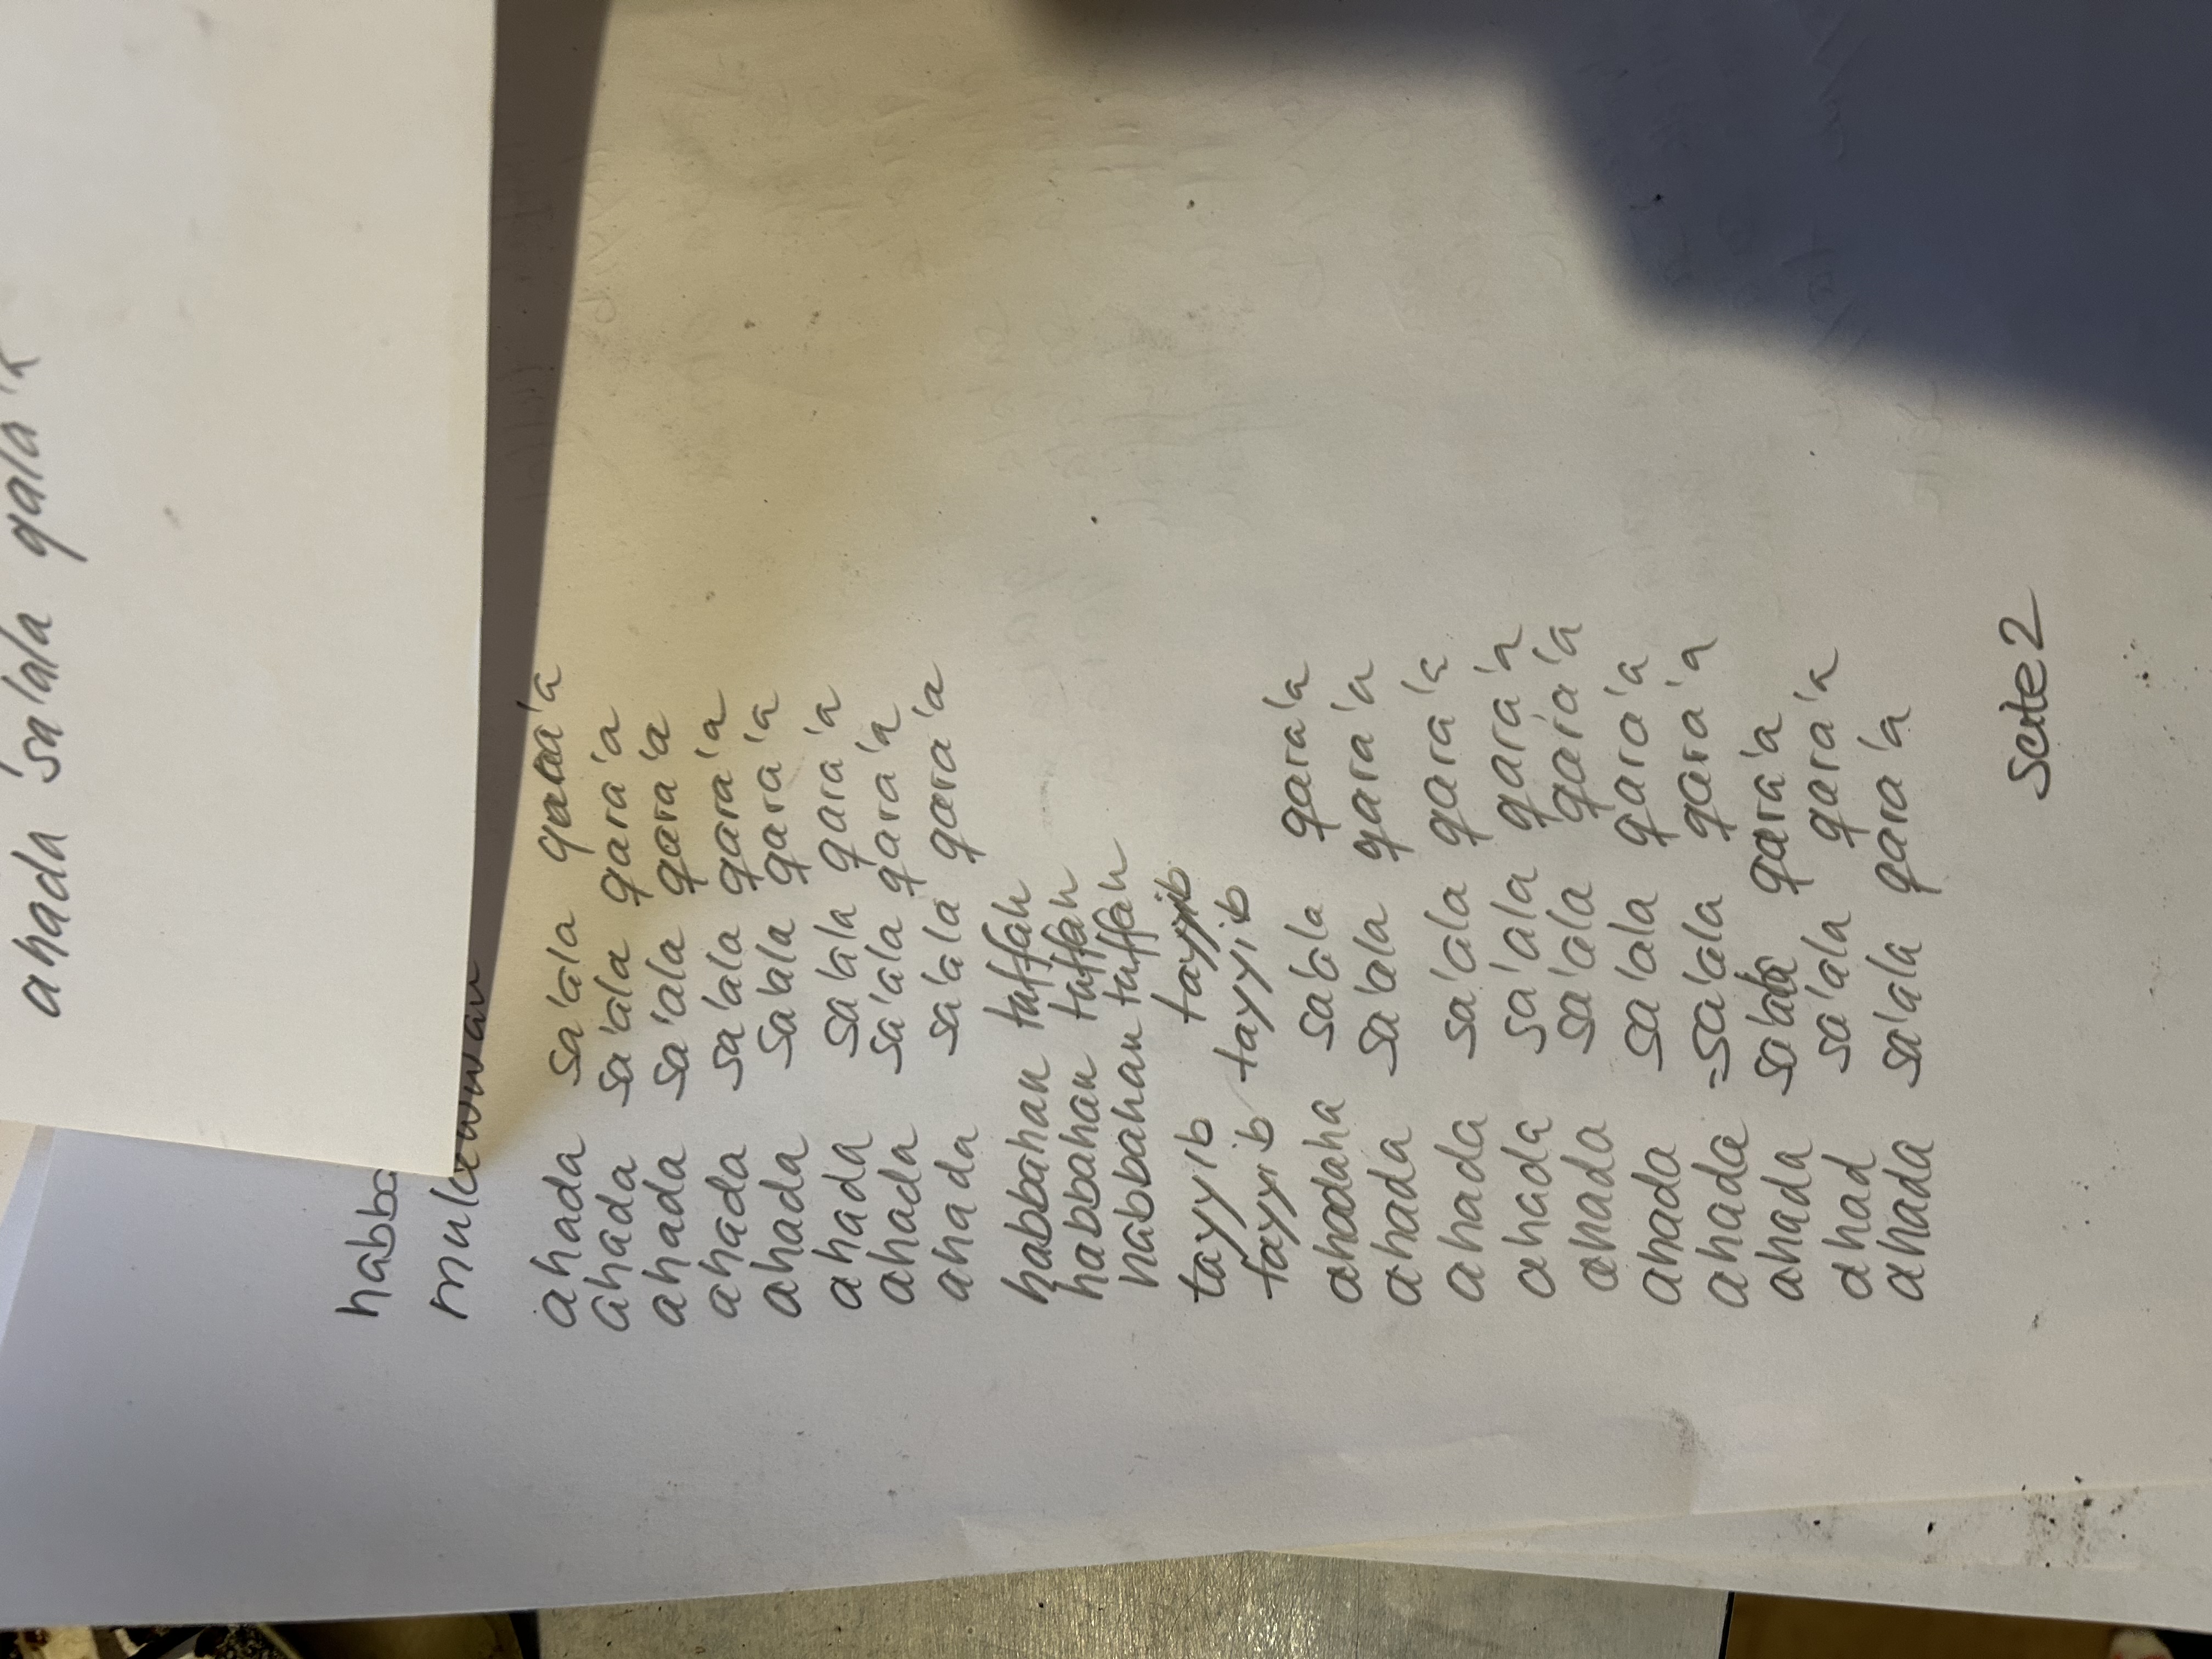 ahada sa'ala qala'a
habba
mukawwan
ahada sa'ala qara'a
ahada sa'ala qara'a
ahada sa'ala qara'a
ahada sa'ala qara'a
ahada sa'ala qara'a
ahada sa'ala qara'a
ahada sa'ala qara'a
ahada sa'ala qara'a
habbahan tuffah
habbahan tuffah
habbahan tuffah
tayyib tayyib
tayyib tayyib
ahadaha sa'ala qara'a
ahada sa'ala qara'a
ahada sa'ala qara'a
ahada sa'ala qara'a
ahada sa'ala qara'a
ahada sa'ala qara'a
ahada =sa'ala qara'a
ahada sa'ala qara'a
ahad sa'ala qara'a
ahada sa'ala qara'a
Seite 2